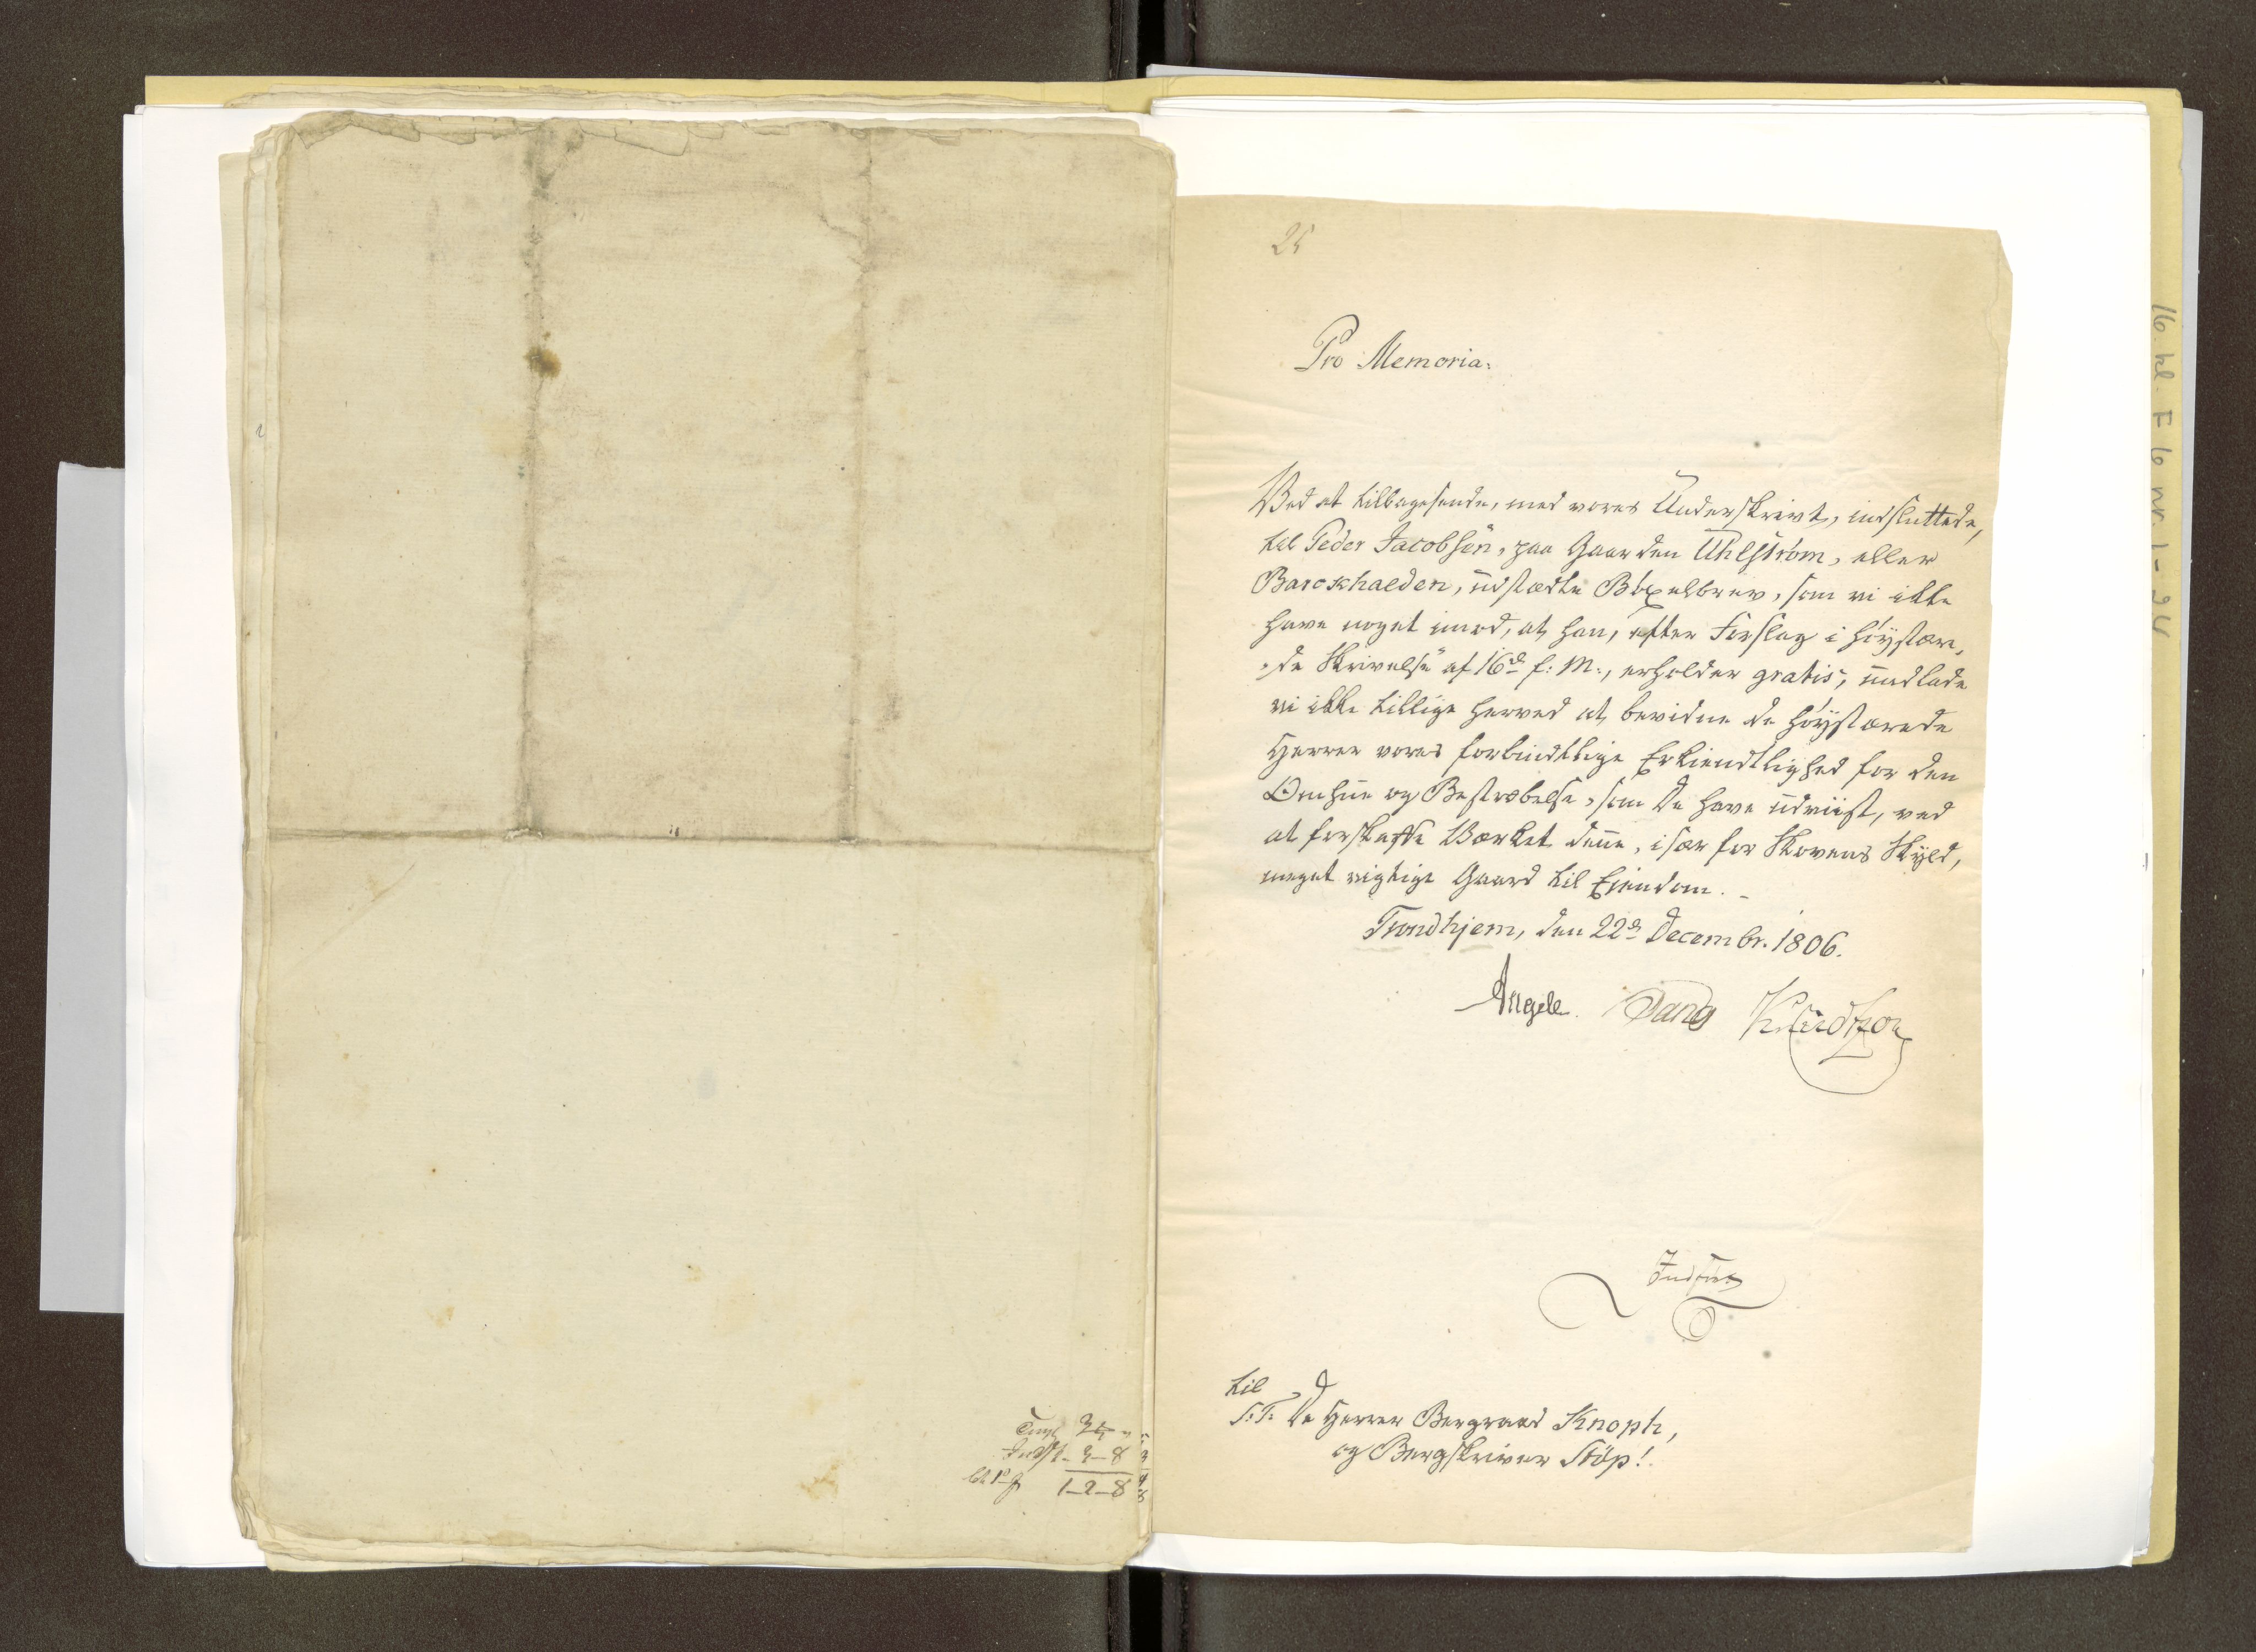 25
Pro Memoria:
Ved at tilbagesende, med vores Underskrivt, indsluttede,
til Peder Jacobsen, paa Gaarden Uhlstrøm, eller
Barckhalden, udstædte Böxelbrev, som vi ikke
have noget imod, at han, efter Forslag i höystær„
„de Skrivelse af 16de f: M:, erholder gratis, undlade
vi ikke tillige herved at bevidne de höystærede
Herrer vores forbindtlige Erkiendtlighed for den
Omhue og Bestræbelse, som De have udviist, ved
at forskaffe Værket denne, især for Skovens Skyld,
meget vigtige Gaard til Eiendom.-
Trondhjem, den 22de Decembr. 1806.
Angell. Dang Knudtzon
Indført
til
S:T: De Herrer Bergraad Knoph,
og Bergskriver Stöp!
3-8
1-2-8
16. kl. F 6 nr. 1-24